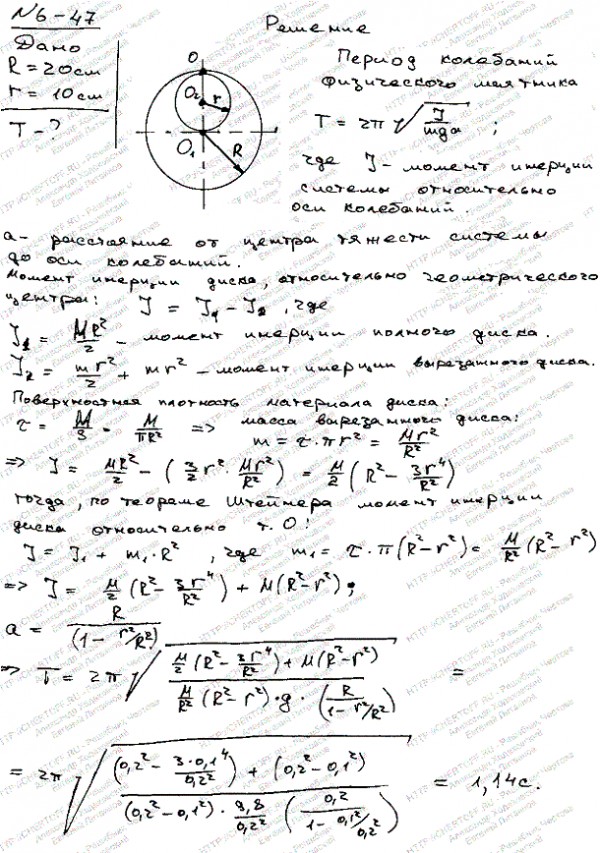 N6-47
Дано
R = 20см
r = 10см
T - ?
Решение
O
O₂
r
O₁
R
Период колебаний
физического маятника
T = 2π √(J/mga) ;
где J - момент инерции
системы относительно
оси колебаний.
a - расстояние от центра тяжести системы
до оси колебаний.
Момент инерции диска, относительно геометрического
центра: J = J₁ - J₂, где
J₁ = MR²/2 - момент инерции полного диска.
J₂ = mr²/2 + mr² - момент инерции вырезанного диска.
Поверхностная плотность материала диска:
τ = M/S = M/πR² => масса вырезанного диска:
m = τ·πr² = Mr²/R²
=> J = MR²/2 - (3/2 r² · Mr²/R²) = M/2 (R² - 3r⁴/R²)
тогда, по теореме Штейнера момент инерции
диска относительно т. O:
J = J₁ + m₁·R², где m₁ = τ·π(R²-r²) = M/R² (R² - r²)
=> J = M/2 (R² - 3r⁴/R²) + M(R²-r²);
a = R/(1 - r²/R²)
=> T = 2π √((M/2 (R² - 3r⁴/R²) + M(R²-r²))/(M/R² (R²-r²)·g·(R/(1-r²/R²)))) =
= 2π √(((0,2² - 3·0,1⁴/0,2²) + (0,2²-0,1²))/((0,2²-0,1²)·9,8/0,2² (0,2/(1-0,1²/0,2²)))) = 1,14с.
HTTP://CHERTOFF.RU - Решебник Чертова
Александр Чертов
Евгения Литвинов